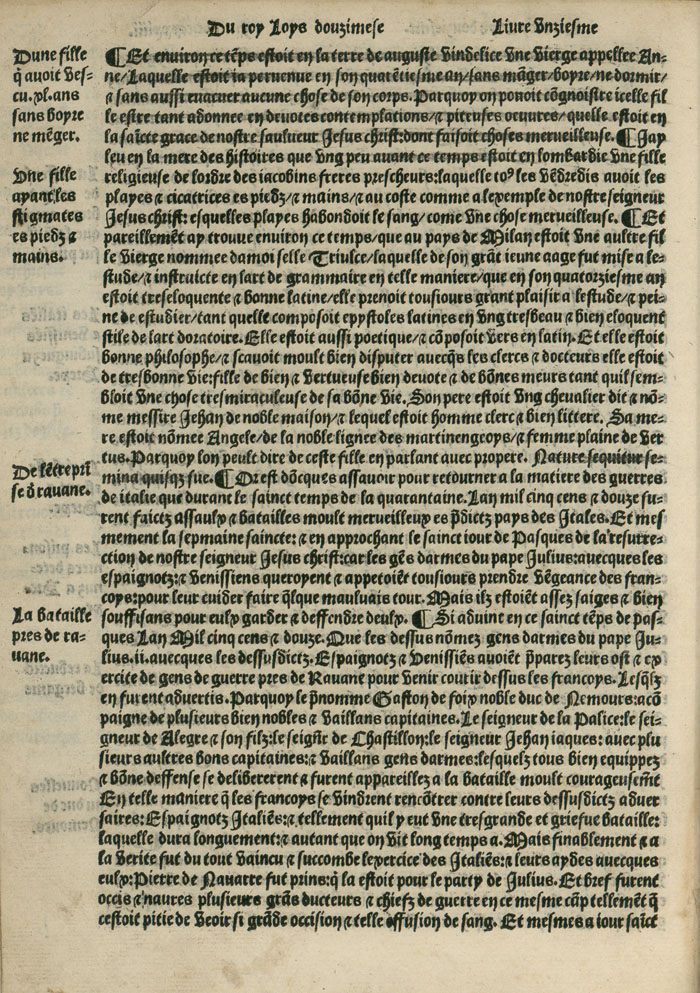 Du roy Loys douziesme
Liure vnziesme
Dune fille
q̃ auoit ves-
cu .xl. ans
sans boyre
ne mẽger.
Vne fille
ayant les
stigmates
es piedz ⁊
mains.
De lẽtreprĩ
se d̃ rauane.
La bataille
pres de ra-
uane.
¶Et enuiron ce tẽps estoit en la terre de auguste vindelice vne vierge appellee An-
ne/Laquelle estoit ia peruenue en son quarẽtiesme an/sans mãger/boyre/ne dormir/
⁊ sans aussi euacuer aucune chose de son corps. Parquoy on pouoit cõgnoistre icelle fil
le estre tant adonnee en deuotes contemplations/⁊ piteuses oeuures/quelle estoit en
la saĩcte grace de nostre saulueur Jesus christ: dont faisoit choses merueilleuse. ¶Jay
leu en la mere des histoires que vng peu auant ce temps estoit en lombardie vne fille
religieuse de lordre des iacobins freres prescheurs: laquelle toꝰ les vẽdredis auoit les
playes ⁊ cicatrices es piedz/⁊ mains/⁊ au coste comme a lexemple de nostre seigneur
Jesus christ: esquelles playes habondoit le sang/come vne chose merueilleuse. ¶Et
pareillemẽt ay trouue enuiron ce temps/que au pays de Milan estoit vne aultre fil
le vierge nommee damoiselle Triulce/laquelle de son grãt ieune aage fut mise a le-
stude/⁊ instruicte en lart de grammaire en telle maniere/que en son quatorziesme an
estoit treseloquente ⁊ bonne latine/elle prenoit tousiours grant plaisir a lestude/⁊ pei-
ne de estudier/tant quelle composoit epystoles latines en vng tresbeau ⁊ bien eloquent
stile de lart doratoire. Elle estoit aussi poetique/⁊ cõposoit vers en latin. Et elle estoit
bonne philosophe/⁊ scauoit moult bien disputer auecq̃s les clercs ⁊ docteurs elle estoit
de tresbonne vie: fille de bien ⁊ vertueuse bien deuote ⁊ de bõnes meurs tant quil sem-
bloit vne chose tresmiraculeuse de sa bõne vie. Son pere estoit vng cheualier dit ⁊ nõ-
me messire Jehan de noble maison/⁊ lequel estoit homme clerc ⁊ bien littere. Sa me-
re estoit nõmee Angele/de la noble lignee des martinengcoys/⁊ femme plaine de ver
tus. Parquoy lon peult dire de ceste fille en parlant auec propere. Nature sequitur se-
mina quisq̃ sue. ¶Or est dõcques assauoir pour retourner a la matiere des guerres
de italie que durant le sainct temps de la quarantaine. Lan mil cinq cens ⁊ douze fu-
rent faictz assaulx ⁊ batailles moult merueilleux es p̃dictz pays des Itales. Et mes
mement la sepmaine saincte: ⁊ en approchant le sainct iour de Pasques de la resurre-
ction de nostre seigneur Jesus christ: car les gẽs darmes du pape Julius: auecques les
espaignotz: ⁊ venissiens queroyent ⁊ appetoiẽt tousiours prendre vẽgeance des fran-
coys: pour leur cuider faire q̃lque mauluais tour. Mais ilz estoiẽt assez saiges ⁊ bien
souffisans pour eulx garder ⁊ deffendre deulx. ¶Si aduint en ce sainct tẽps de pas-
ques Lan Mil cinq cens ⁊ douze. Que les dessus nõmez gens darmes du pape Ju-
lius. ii. auecques les dessusdictz. Espaignotz ⁊ Venissiẽs auoiẽt p̃parez leurs ost ⁊ ex
ercite de gens de guerre pres de Rauane pour venir courir dessus les francoys. Lesq̃lz
en furent aduertis. Parquoy le p̃nomme Gaston de foix noble duc de Nemours: acõ
paigne de plusieurs bien nobles ⁊ vaillans capitaines. Le seigneur de la Palice: le sei-
gneur de Alegre ⁊ son filz: le seigñr de Chastillon: le seigneur Jehan iaques: auec plu
sieurs aultres bons capitaines: ⁊ vaillans gens darmes: lesquelz tous bien equippez
⁊ bõne deffense se delibererent ⁊ furent appareillez a la bataille moult courageusemẽt
En telle maniere q̃ les francoys se vindrent rencõtrer contre leurs dessusdictz aduer
saires: Espaignotz Italiẽs: ⁊ tellement quil y eut vne tresgrande ⁊ griefue bataille:
laquelle dura longuement: ⁊ autant que on vit long temps a. Mais finablement ⁊ a
la verite fut du tout vaincu ⁊ succombe lexercice des Italiẽs: ⁊ leurs aydes auecques
eulx: Pierre de Nauarre fut prins: q̃ la estoit pour le party de Julius. Et bref furent
occis ⁊ naures plusieurs grãs ducteurs ⁊ chiefz de guerre en ce mesme cãp tellemẽt q̃
cestoit pitie de veoir si grãde occision ⁊ telle effusion de sang. Et mesmes a iour saĩct